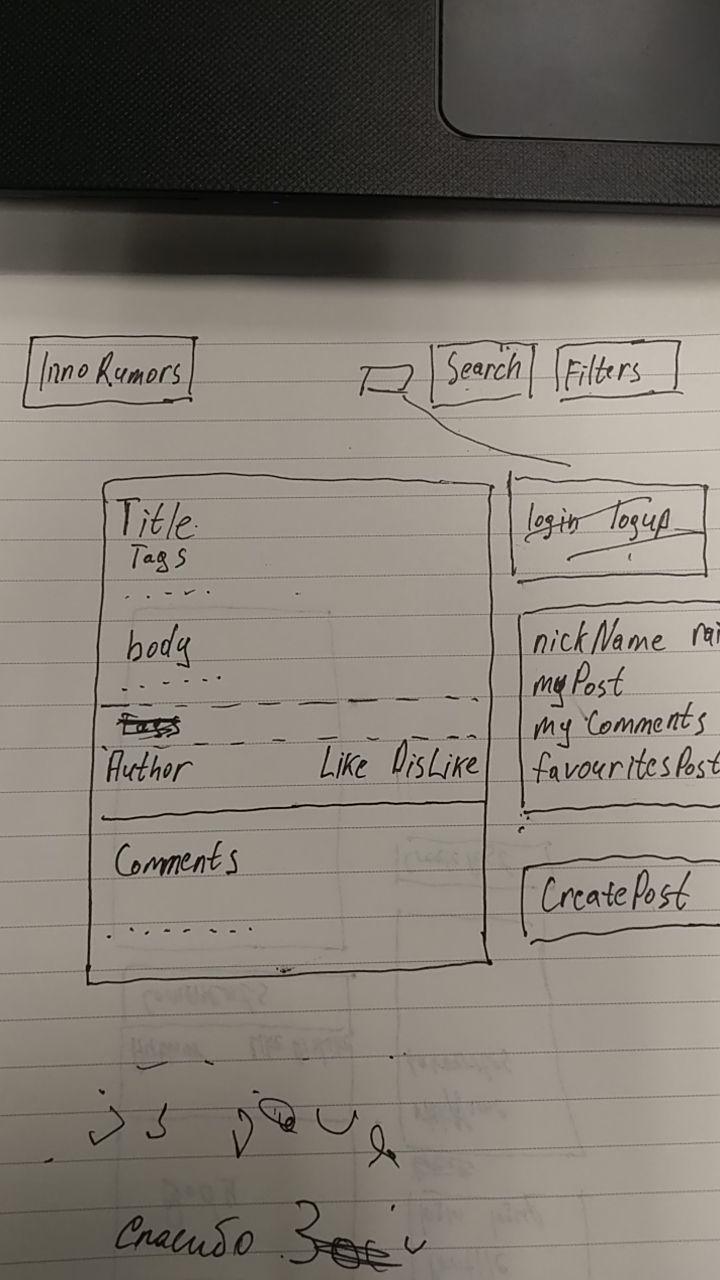 Inno Rumors
Search
Filters
Title
Tags
body
Tags
Author Like DisLike
Comments
login logup
nickName
myPost
my Comments
favouritesPost
CreatePost
Спасибо